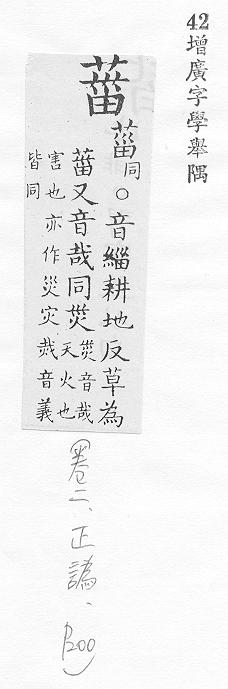 42增廣字學舉隅
葘
菑同○音緇耕地反草為
葘又音哉同災災音哉天火也
害也亦作災灾烖音義
皆同
卷二、正譌、P200